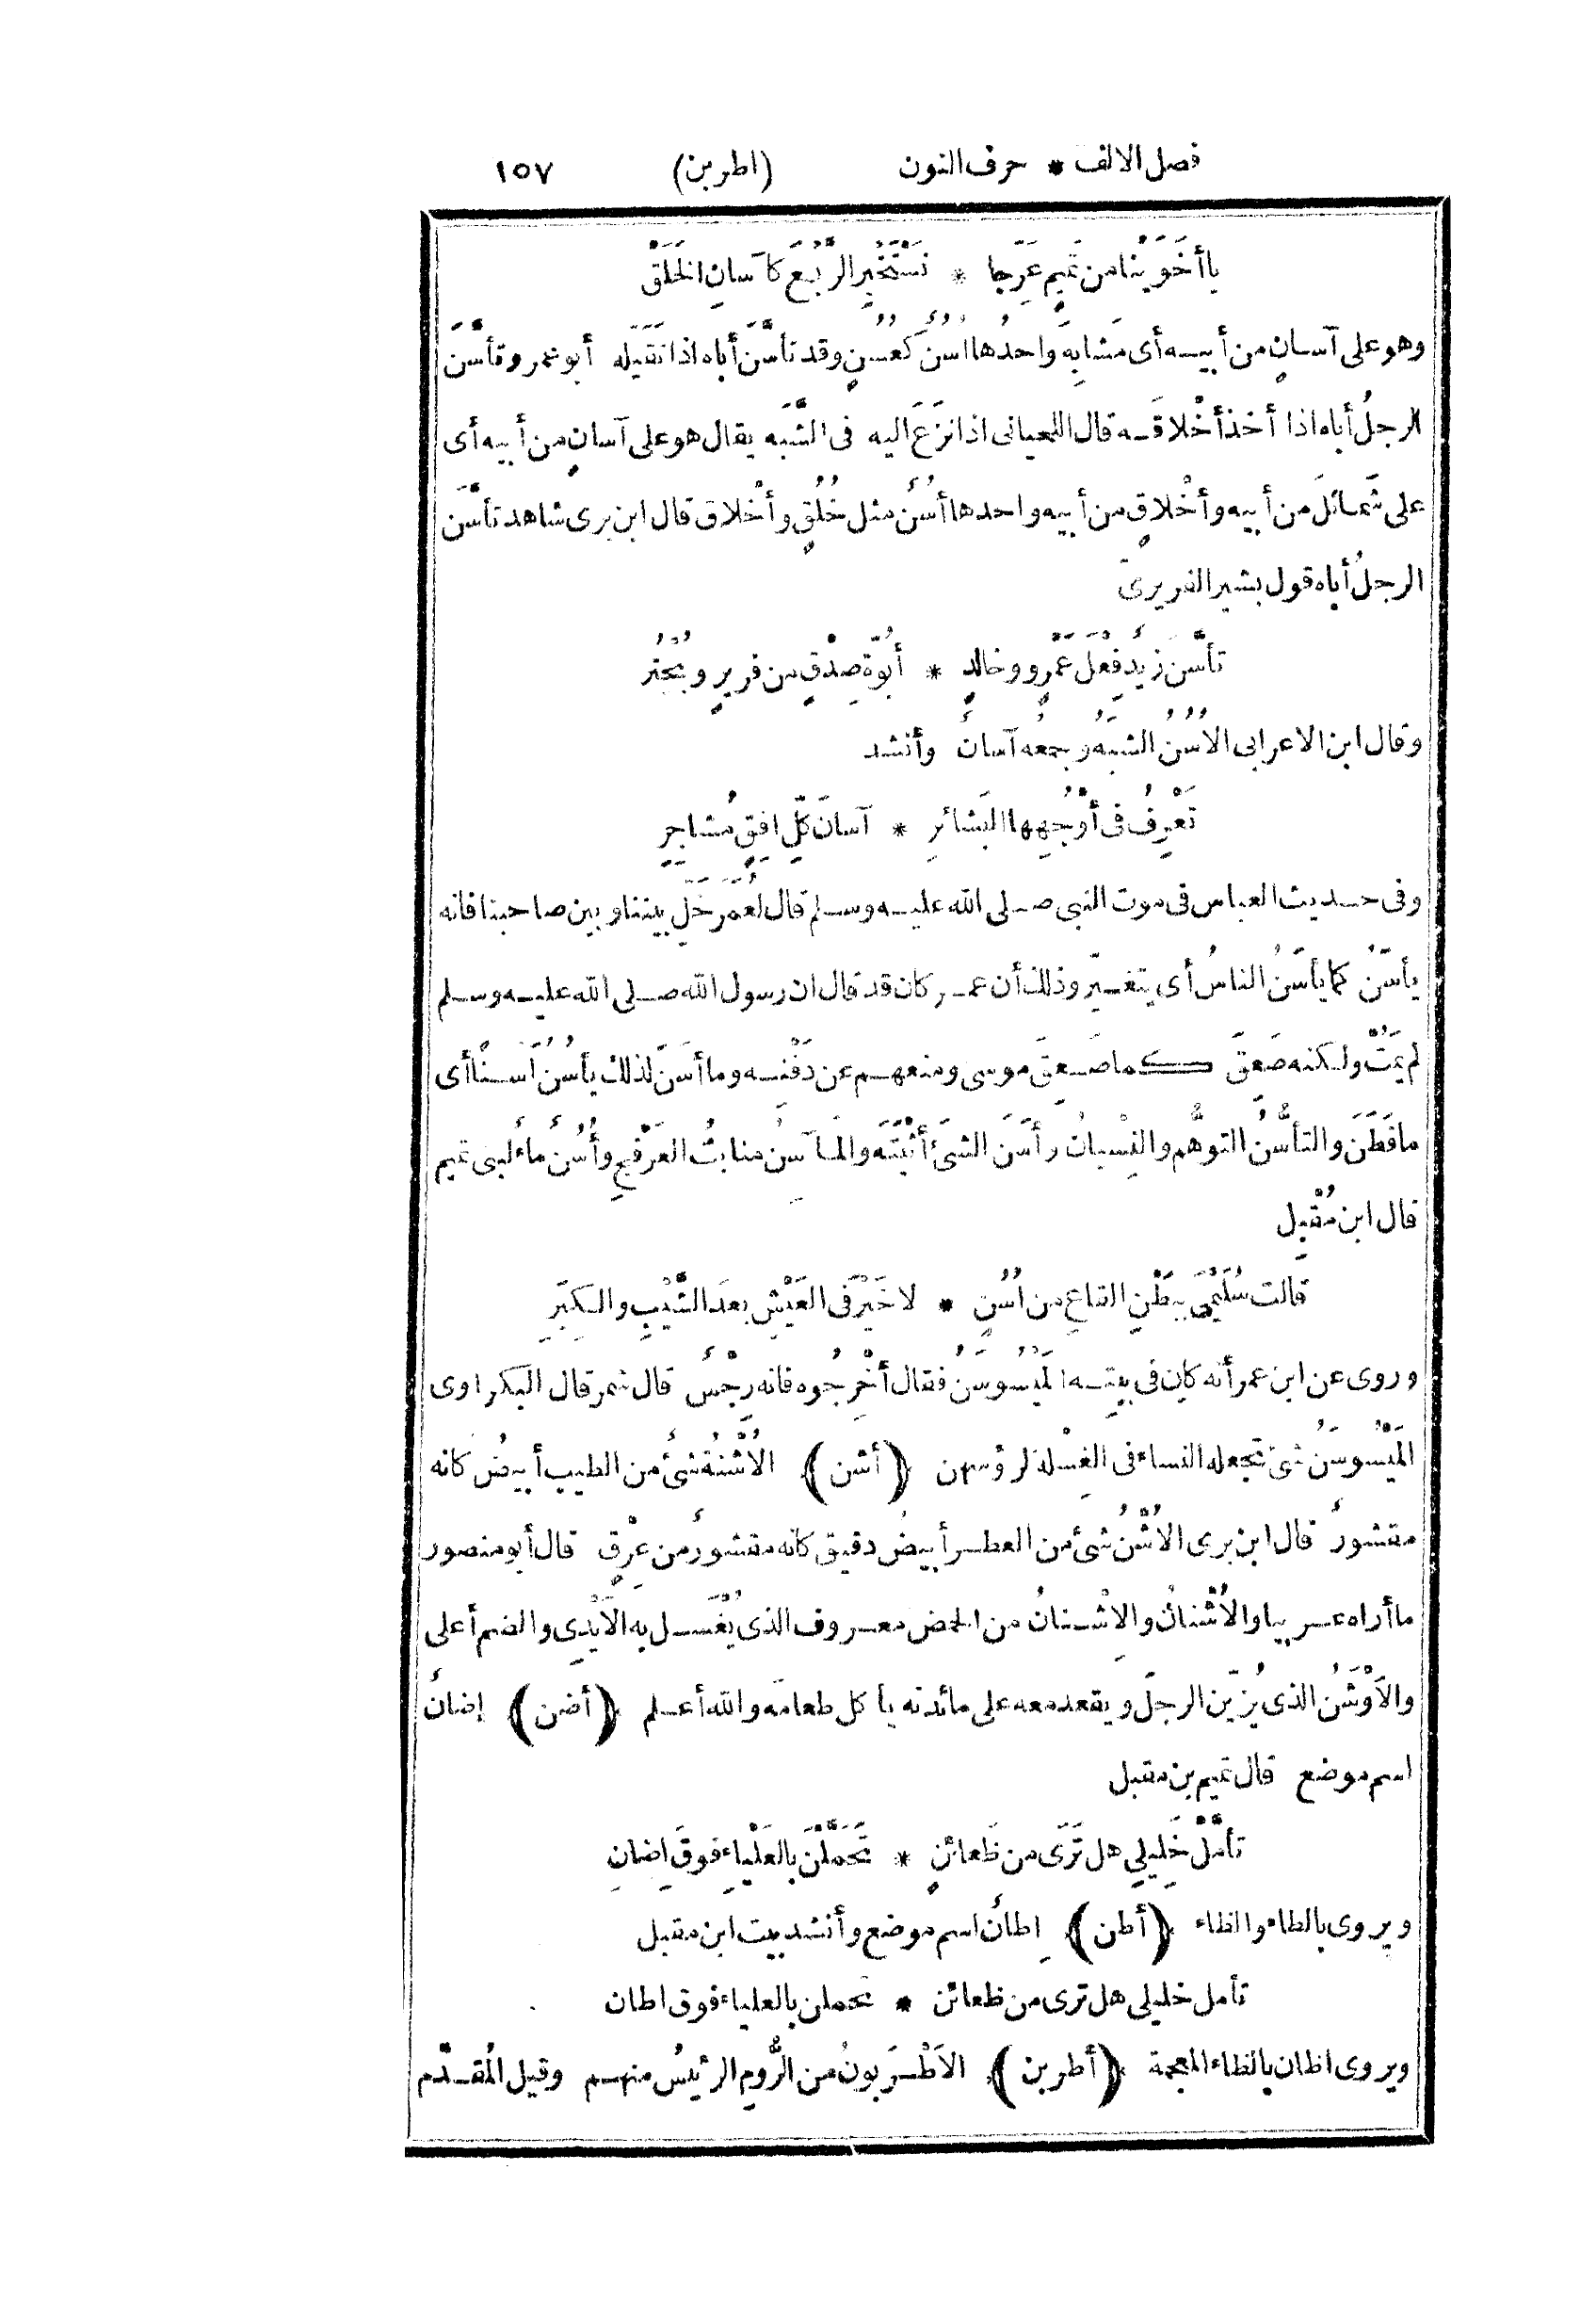 فصل الالف * حرف النون (اطربن) ١٥٧
يا أَخَوَيْنا من تَميمٍ عَرِّجا * نَسْتَخْبِرِ الرَّبْعَ كآسانِ الخَلَقْ
وهو على آسانٍ من أبيه أى مَشابِهَ واحدُها أُسُنٌ كعُسُنٍ وقد تأَسَّنَ أباه اذا تَقَيَّله أبو عمرو تأسَّنَ
الرجلُ أباه اذا أخذ أَخْلاقَه قال اللحيانى اذا نَزَعَ اليه فى الشَّبَه يقال هو على آسانٍ من أبيه أى
على شَمائلَ من أبيه وأَخْلاقٍ من أبيه واحدها أُسُنٌ مثل خُلُقٍ وأَخْلاق قال ابن برى شاهد تأسَّنَ
الرجلُ أباه قول بشير الفريرىّ
تأسَّنَ زيدٌ فِعْلَ عَمْرٍو وخالدٍ * أُبُوّةِ صِدْقٍ من فريرٍ وبُحْتُر
وقال ابن الاعرابى الأُسُنُ الشبَهُ وجمعُه آسانٌ وأنشد
تَعْرِفُ فى أَوْجُهِها البَشائرِ * آسانَ كلِّ افِقٍ مُشاجِرِ
وفى حديث العباس فى موت النبى صلى الله عليه وسلم قال لعُمَرَ خَلِّ بيننا وبين صاحبنا فانه
يأسَنُ كما يأسَنُ الناسُ أى يتغيّر وذلك أن عمر كان قد قال ان رسول الله صلى الله عليه وسلم
لم يَمُتْ ولكنه صَعِقَ كما صَعِقَ موسى ومنعهم عن دَفْنِه وما أَسَنَ لذلك يأسُنُ أَسْنًا أى
ما فَطَنَ والتأسُّنُ التوهُّم والنِسْيانُ وأَسَنَ الشىءَ أَثْبَتَه والمآسِنُ منابتُ العَرْفَجِ وأُسُنٌ ماءٌ لبنى تميم
قال ابن مُقْبِل
قالت سُلَيْمَى بِبَطْنِ القاعِ من أُسُنٍ * لا خَيْرَ فى العَيْشِ بعدَ الشَّيْبِ والكِبَرِ
وروى عن ابن عمر أنه كان فى بيتِه المَيْسُوسَنُ فقال أَخْرِجُوه فانه رِجْسٌ قال شمر قال البكراوى
المَيْسُوسَنُ شئ تجعله النساء فى الغِسْلة لرؤسهن (أشن) الأُشْنةُ شئٌ من الطيب أبيضُ كانه
مقشورٌ قال ابن برى الأُشْنُ شئٌ من العطر أبيضُ دقيق كانه مقشورٌ من عِرْقٍ قال أبو منصور
ما أراه عربيا والأُشْنانُ والاِشْنانُ من الحمض معروف الذى يُغْسَل به الأَيْدِى والضم أعلى
والأَوْشَنُ الذى يُزَيّن الرجلَ ويقعد معه على مائدته يأكل طعامَه والله أعلم (أضن) إضانٌ
اسم موضع قال تميم بن مقبل
تأَمَّلْ خَلِيلِى هل تَرَى من ظَعائنٍ * تَحَمَّلْنَ بالعَلْياءِ فوقَ اِضانِ
ويروى بالطاء والظاء (أطن) اِطانٌ اسم موضع وأنشد بيت ابن مقبل
تأمل خليلى هل ترى من ظعائن * تحملن بالعلياء فوق اطان
ويروى اظان بالظاء المعجمة (أطربن) الأَطْرَبونُ من الرُّوم الرئيسُ منهم وقيل المُقدّم